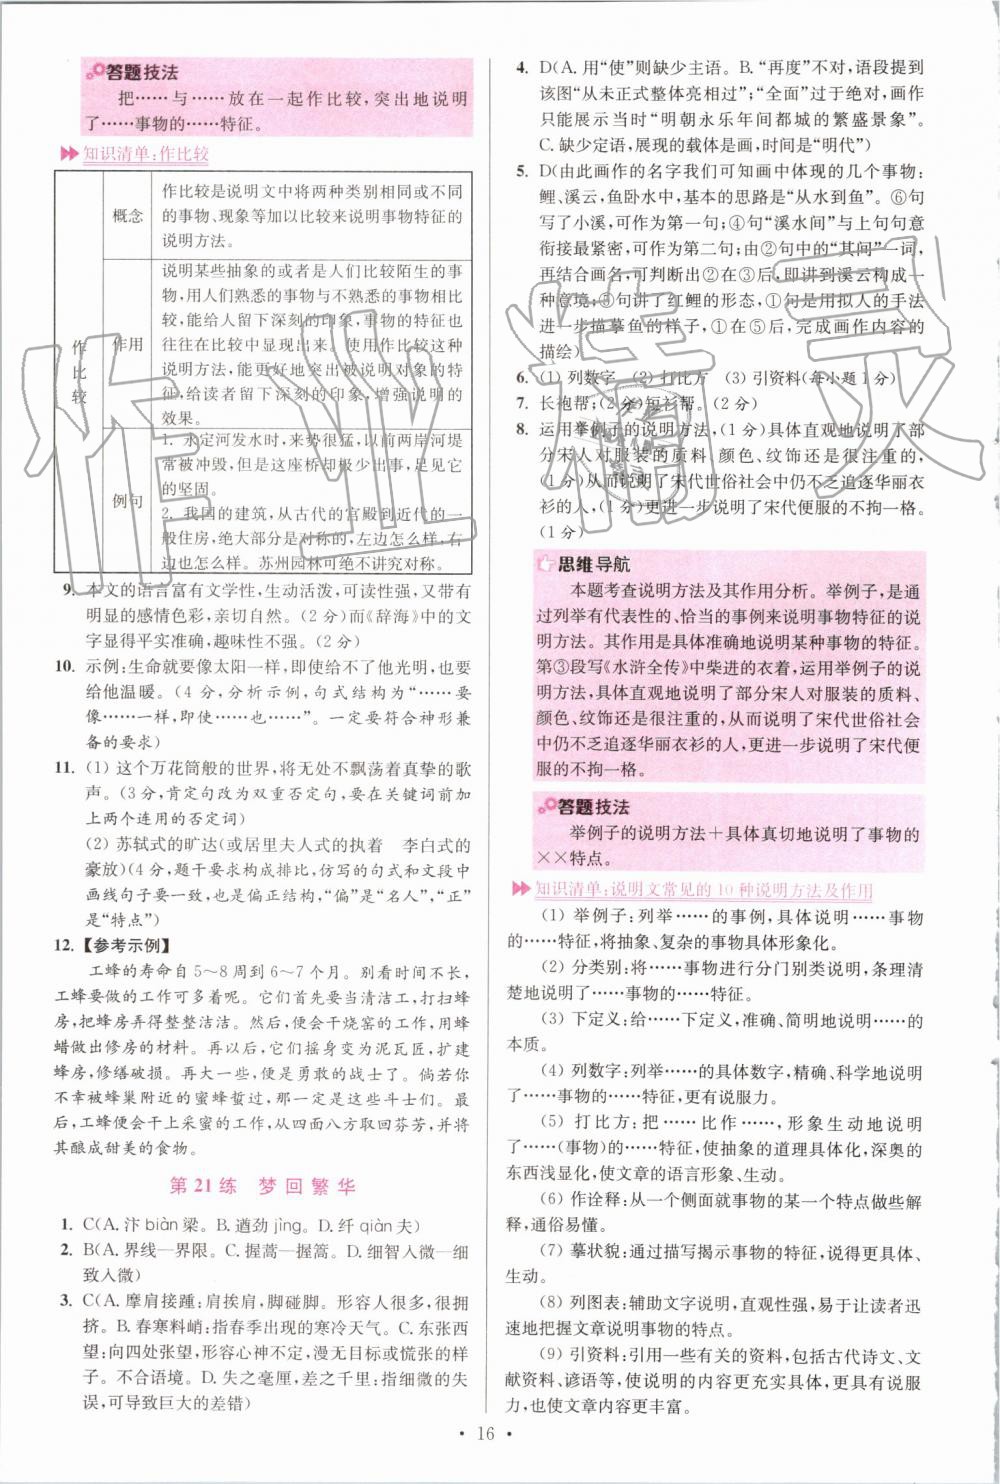 答题技法
把……与……放在一起作比较,突出地说明
了……事物的……特征。
知识清单:作比较
作比较
概念
作比较是说明文中将两种类别相同或不同
的事物、现象等加以比较来说明事物特征的
说明方法。
作用
说明某些抽象的或者是人们比较陌生的事
物,用人们熟悉的事物与不熟悉的事物相比
较,能给人留下深刻的印象,事物的特征也
往往在比较中显现出来。使用作比较这种
说明方法,能更好地突出被说明对象的特
征,给读者留下深刻的印象,增强说明的
效果。
例句
1. 永定河发水时,来势很猛,以前两岸河堤
常被冲毁,但是这座桥却极少出事,足见它
的坚固。
2. 我国的建筑,从古代的宫殿到近代的一
般住房,绝大部分是对称的,左边怎么样,右
边怎么样。苏州园林可绝不讲究对称。
9. 本文的语言富有文学性,生动活泼,可读性强,又带有
明显的感情色彩,亲切自然。(2 分)而《辞海》中的文
字显得平实准确,趣味性不强。(2 分)
10. 示例:生命就要像太阳一样,即使给不了他光明,也要
给他温暖。(4 分,分析示例,句式结构为“……要
像……一样,即使……也……”。一定要符合神形兼
备的要求)
11. (1) 这个万花筒般的世界,将无处不飘荡着真挚的歌
声。(3 分,肯定句改为双重否定句,要在关键词前加
上两个连用的否定词)
(2) 苏轼式的旷达(或居里夫人式的执着 李白式的
豪放)(4 分,题干要求构成排比,仿写的句式和文段中
画线句子要一致,也是偏正结构,“偏”是“名人”,“正”
是“特点”)
12. 【参考示例】
工蜂的寿命自 5～8 周到 6～7 个月。别看时间不长,
工蜂要做的工作可多着呢。它们首先要当清洁工,打扫蜂
房,把蜂房弄得整整洁洁。然后,便会干烧窑的工作,用蜂
蜡做出修房的材料。再以后,它们摇身变为泥瓦匠,扩建
蜂房,修缮破损。再大一些,便是勇敢的战士了。倘若你
不幸被蜂巢附近的蜜蜂蜇过,那一定是这些斗士们。最
后,工蜂便会干上采蜜的工作,从四面八方取回芬芳,并将
其酿成甜美的食物。
第 21 练 梦回繁华
1. C(A. 汴 biàn 梁。B. 遒劲 jìng。D. 纤 qiàn 夫)
2. B(A. 界线—界限。C. 握蒿—握篙。D. 细智入微—细
致入微)
3. C(A. 摩肩接踵:肩挨肩,脚碰脚。形容人很多,很拥
挤。B. 春寒料峭:指春季出现的寒冷天气。C. 东张西
望:向四处张望,形容心神不定,漫无目标或慌张的样
子。不合语境。D. 失之毫厘,差之千里:指细微的失
误,可导致巨大的差错)
4. D(A. 用“使”则缺少主语。B. “再度”不对,语段提到
该图“从未正式整体亮相过”;“全面”过于绝对,画作
只能展示当时“明朝永乐年间都城的繁盛景象”。
C. 缺少定语,展现的载体是画,时间是“明代”)
5. D(由此画作的名字我们可知画中体现的几个事物:
鲤、溪云,鱼卧水中,基本的思路是“从水到鱼”。⑥句
写了小溪,可作为第一句;④句“溪水间”与上句句意
衔接最紧密,可作为第二句;由②句中的“其间”一词,
再结合画名,可判断出②在③后,即讲到溪云构成一
种意境;⑤句讲了红鲤的形态,①句是用拟人的手法
进一步描摹鱼的样子,①在⑤后,完成画作内容的
描绘)
6. (1) 列数字 (2) 打比方 (3) 引资料(每小题 1 分)
7. 长袍帮;(2 分)短衫帮。(2 分)
8. 运用举例子的说明方法,(1 分)具体直观地说明了部
分宋人对服装的质料、颜色、纹饰还是很注重的,
(1 分)从而说明了宋代世俗社会中仍不乏追逐华丽衣
衫的人,(1 分)更进一步说明了宋代便服的不拘一格。
(1 分)
思维导航
本题考查说明方法及其作用分析。举例子,是通
过列举有代表性的、恰当的事例来说明事物特征的说
明方法。其作用是具体准确地说明某种事物的特征。
第③段写《水浒全传》中柴进的衣着,运用举例子的说
明方法,具体直观地说明了部分宋人对服装的质料、
颜色、纹饰还是很注重的,从而说明了宋代世俗社会
中仍不乏追逐华丽衣衫的人,更进一步说明了宋代便
服的不拘一格。
答题技法
举例子的说明方法＋具体真切地说明了事物的
××特点。
知识清单:说明文常见的 10 种说明方法及作用
(1) 举例子:列举……的事例,具体说明……事物
的……特征,将抽象、复杂的事物具体形象化。
(2) 分类别:将……事物进行分门别类说明,条理清
楚地说明了……事物的……特征。
(3) 下定义:给……下定义,准确、简明地说明……的
本质。
(4) 列数字:列举……的具体数字,精确、科学地说明
了……事物的……特征,更有说服力。
(5) 打比方:把……比作……,形象生动地说明
了……(事物)的……特征,使抽象的道理具体化,深奥的
东西浅显化,使文章的语言形象、生动。
(6) 作诠释:从一个侧面就事物的某一个特点做些解
释,通俗易懂。
(7) 摹状貌:通过描写揭示事物的特征,说得更具体、
生动。
(8) 列图表:辅助文字说明,直观性强,易于让读者迅
速地把握文章说明事物的特点。
(9) 引资料:引用一些有关的资料,包括古代诗文、文
献资料、谚语等,使说明的内容更充实具体,更具有说服
力,也使文章内容更丰富。
• 16 •
作业精灵